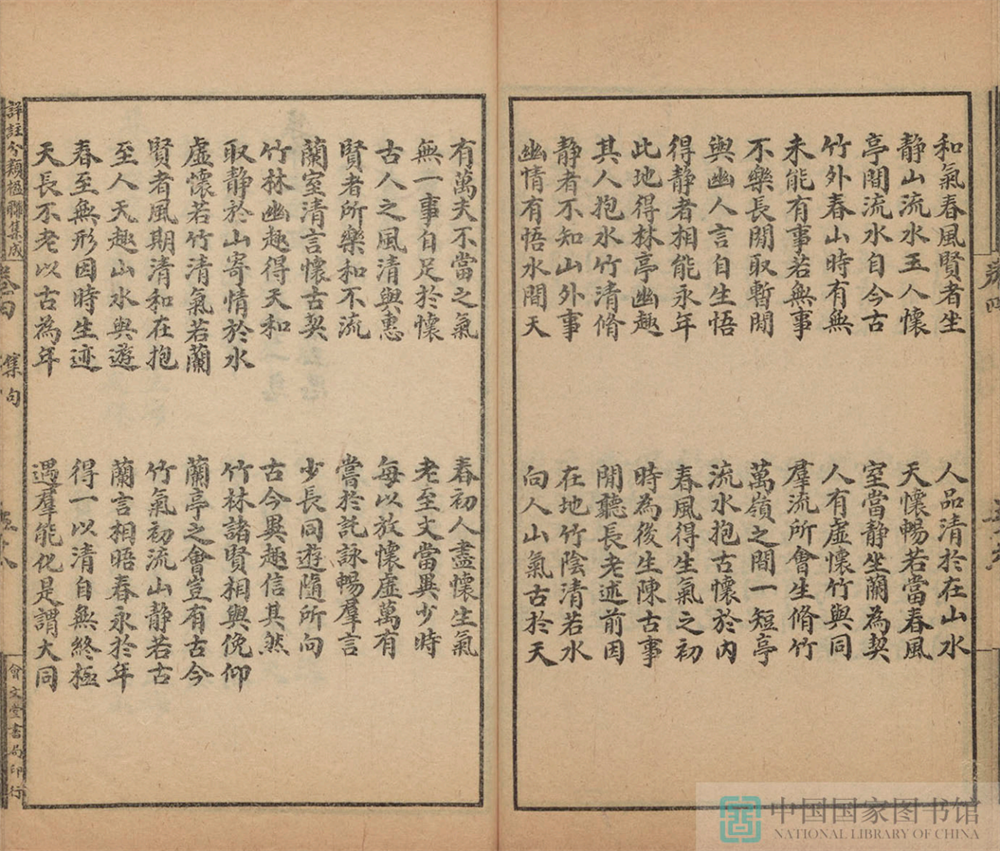 和氣春風賢者坐
靜山流水玉人懷
亭間流水自今古
竹外春山時有無
未能有事若無事
不樂長閒取暫閒
與幽人言自生悟
得靜者相能永年
此地得林亭幽趣
其人抱水竹清脩
靜者不知山外事
幽情有悟水間天
人品清於在山水
天懷暢若當春風
室當靜坐蘭為契
人有虛懷竹與同
羣流所會生脩竹
萬嶺之間一短亭
流水抱古懷於內
春風得生氣之初
時為後生陳古事
閒聽長老述前因
在地竹陰清若水
向人山氣古於天
有萬夫不當之氣
無一事自足於懷
古人之風清與惠
賢者所樂和不流
蘭室清言懷古契
竹林幽趣得天和
取靜於山寄情於水
虛懷若竹清氣若蘭
賢者風期清和在抱
至人天趣山水與遊
春至無形因時生迹
天長不老以古為年
春初人盡懷生氣
老至文當異少時
每以放懷虛萬有
嘗於託詠暢羣言
少長同遊隨所向
古今異趣信其然
竹林諸賢相與俛仰
蘭亭之會豈有古今
竹氣初流山靜若古
蘭言相晤春永於年
得一以清自無終極
遇羣能化是謂大同
詳註分類楹聯集成
集句
會文堂書局印行
中国国家图书馆
NATIONAL LIBRARY OF CHINA